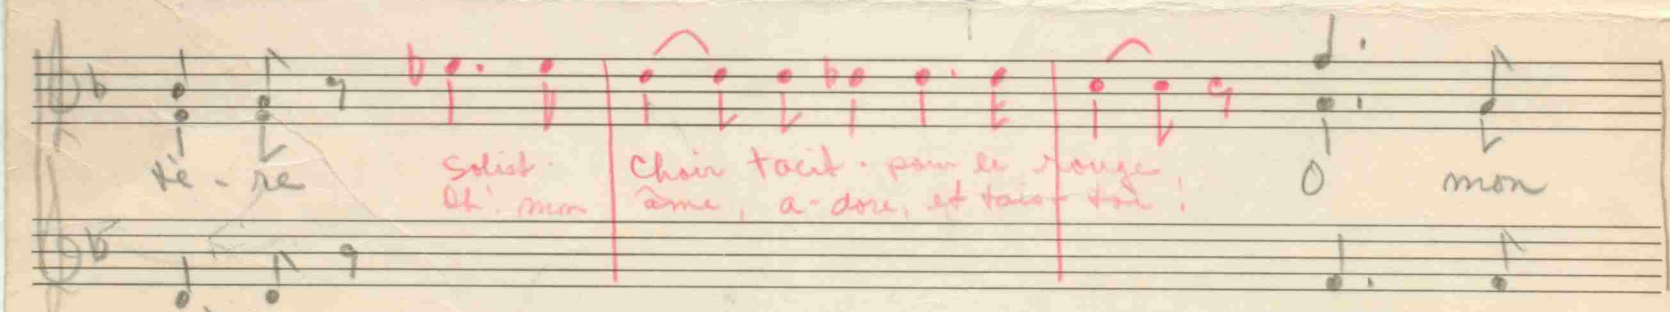 tè - re Solist. Choir tacit. pour le rouge O mon
Oh! mon âme, a-dore, et tais-toi!